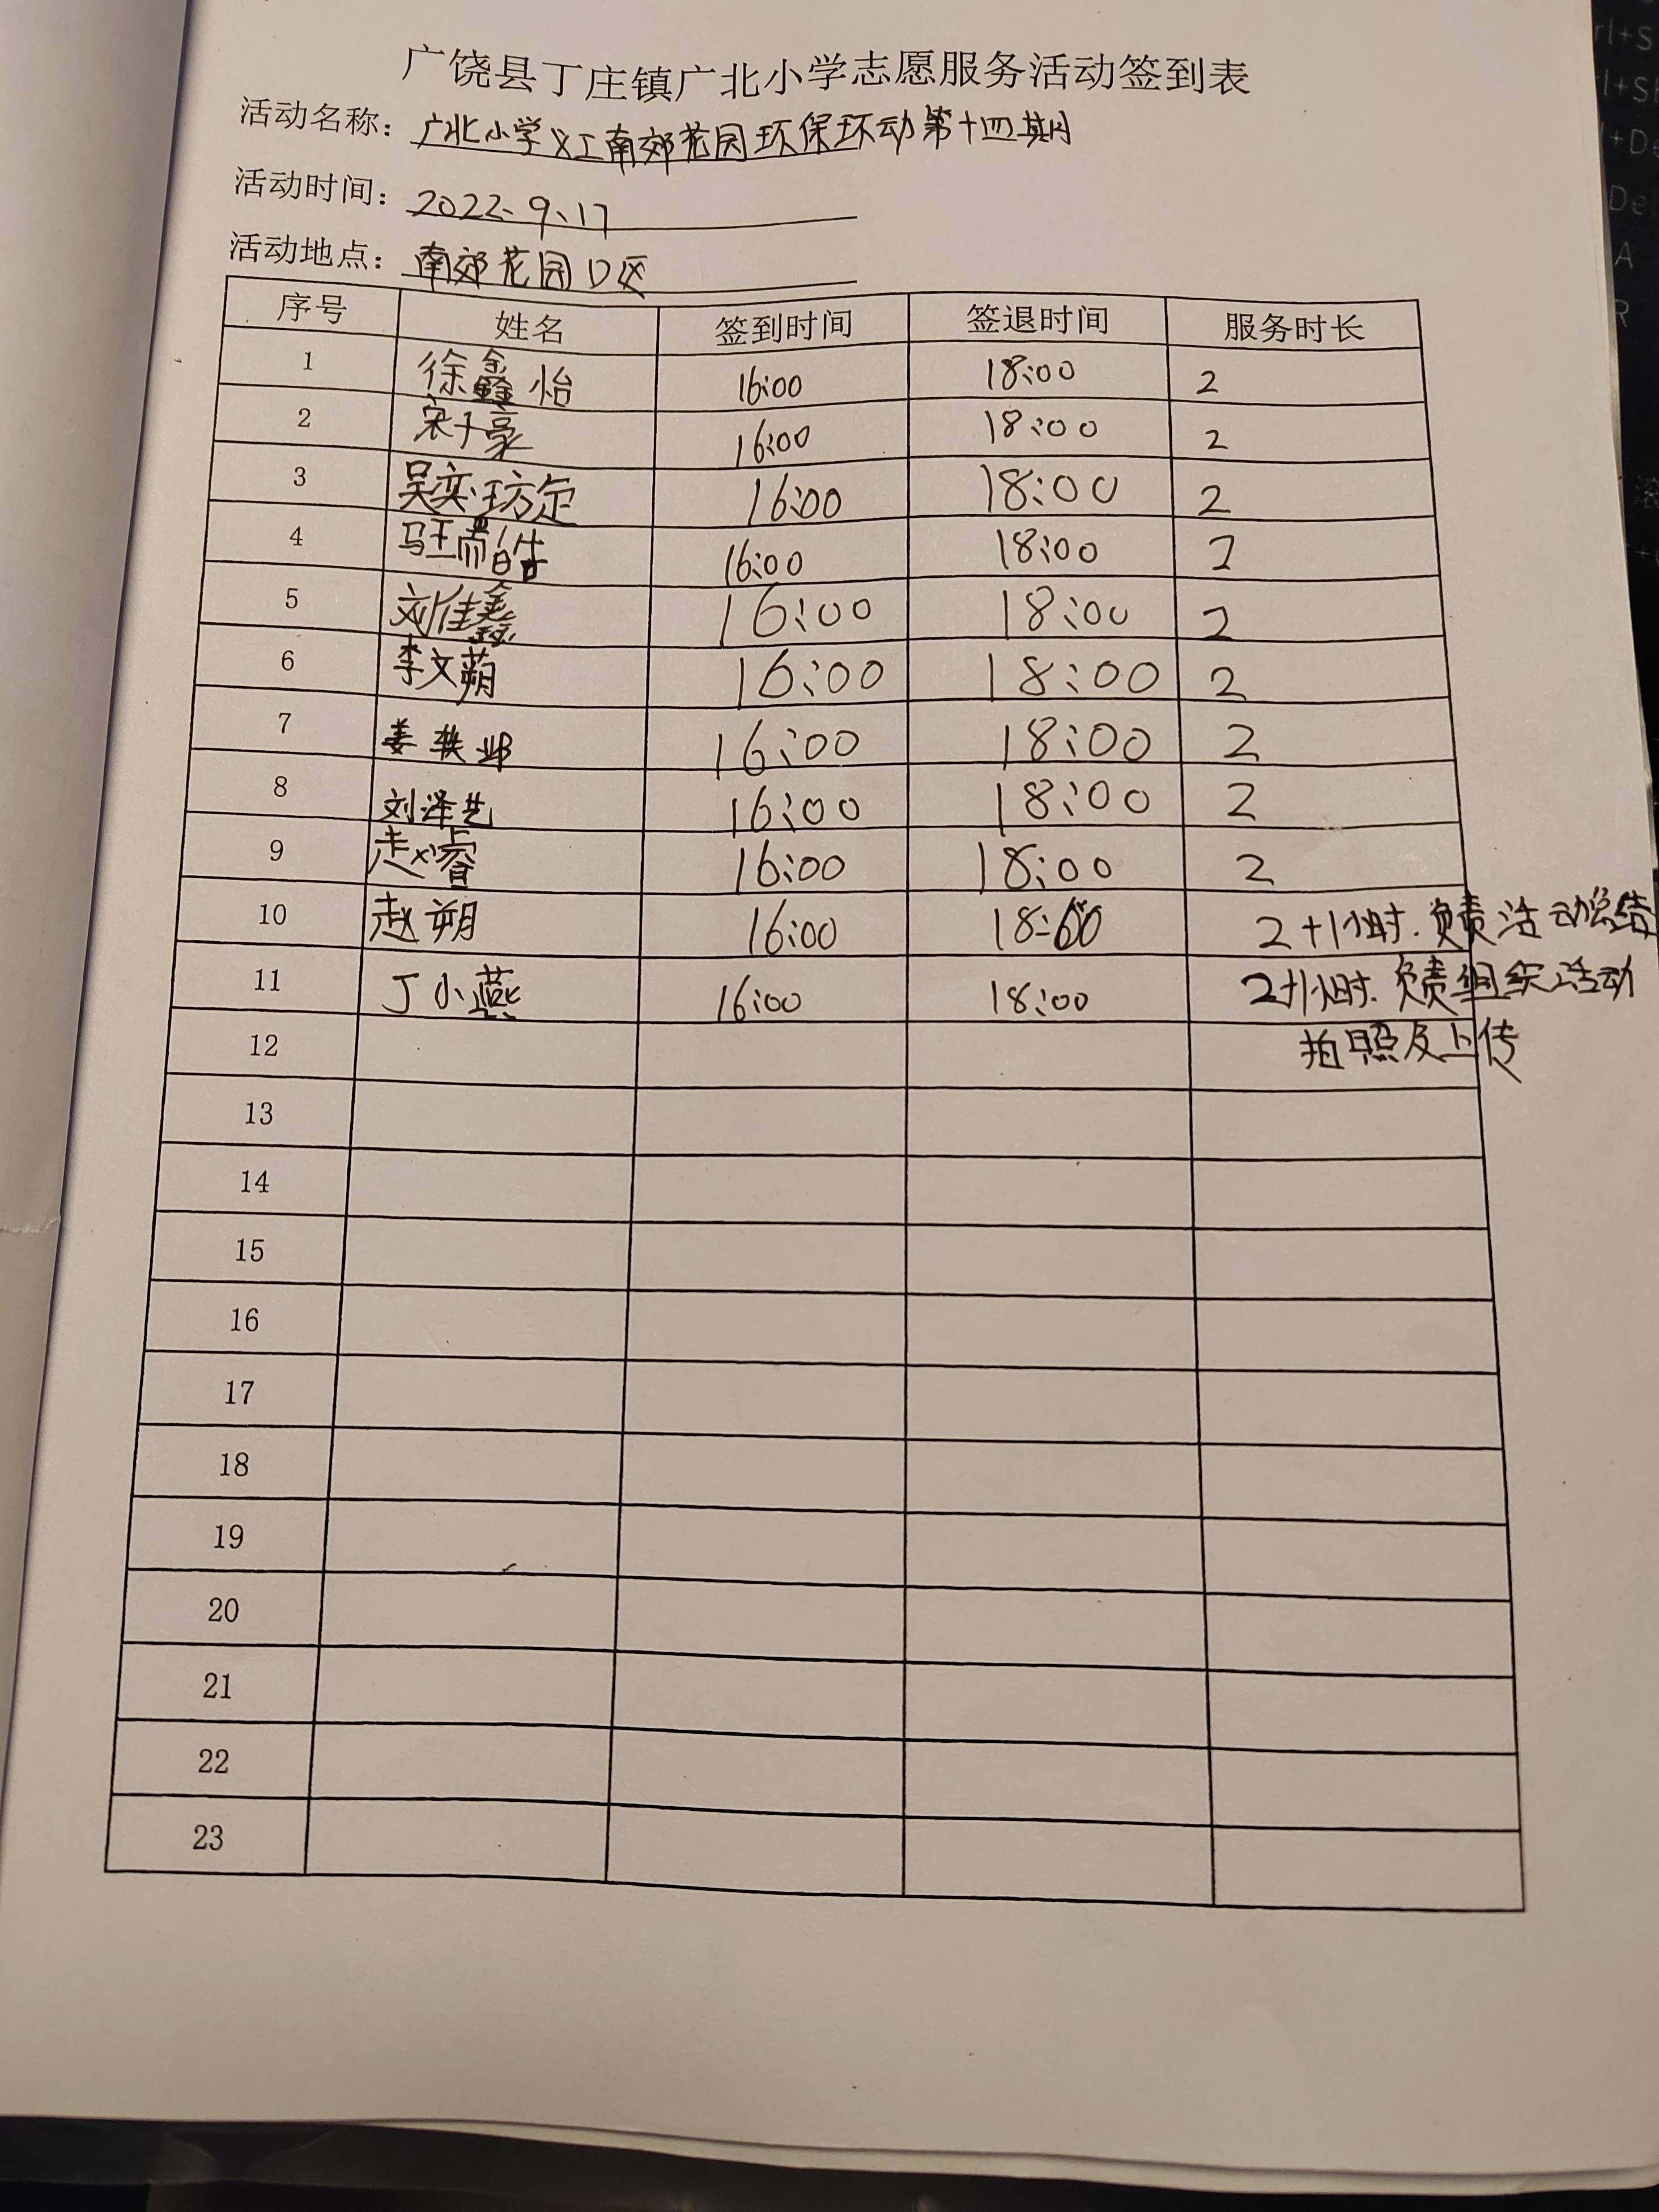 广饶县丁庄镇广北小学志愿服务活动签到表
活动名称：广北小学义工南郊花园环保环动第十四期
活动时间：2022、9、17
活动地点：南郊花园D区
序号 姓名 签到时间 签退时间 服务时长
1 徐鑫怡 16:00 18:00 2
2 宋子豪 16:00 18:00 2
3 吴奕 16:00 18:00 2
4 马王 皓 16:00 18:00 2
5 刘佳鑫 16:00 18:00 2
6 李文蒴 16:00 18:00 2
7 姜轶 16:00 18:00 2
8 刘泽艺 16:00 18:00 2
9 赵睿 16:00 18:00 2
10 赵朔 16:00 18:00 2+1小时.负责活动总结
11 丁小燕 16:00 18:00 2+1小时.负责组织活动
12 拍照及上传
13
14
15
16
17
18
19
20
21
22
23